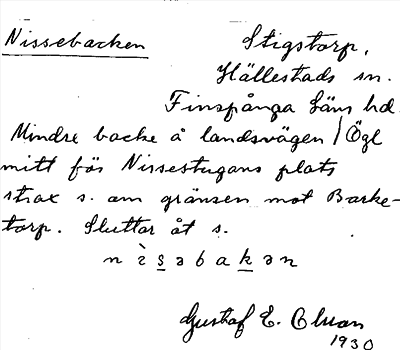 Nissebacken
Stigstorp,
Hällestads sn.
Finspånga läns hd.
Mindre backe å landsvägen / Ögl
mitt för Nissestugans plats
strax s. om gränsen mot Barke-
torp. Sluttar åt s.
n ì s ə b a k ə n
Gustaf E.
1930